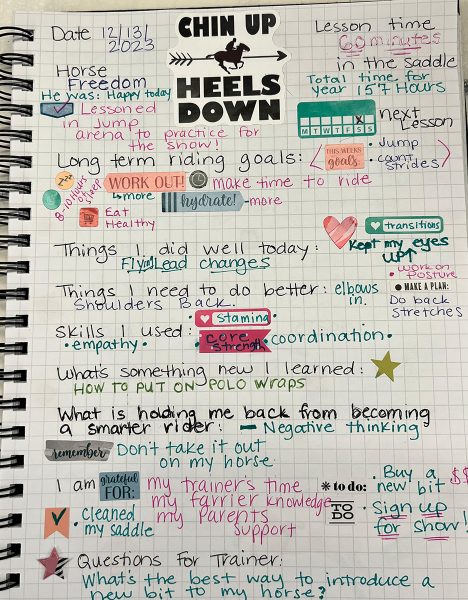 Date 12/13/2023
CHIN UP
HEELS DOWN
Lesson time
60 minutes
in the saddle
Total time for
year 157 Hours
Horse
Freedom
He was: Happy today
Lessoned
in Jump
arena to practice for
the show!
M T W T F S S
next
Lesson
Long term riding goals:
THIS WEEKS
goals
• Jump
• count
strides
8-10 Hours of sleep
WORK OUT!
more
make time to ride
hydrate! -more
Eat
Healthy
transitions
Things I did well today:
Kept my eyes
UP↑
Flying Lead changes
• work on
posture
Things I need to do better: elbows
in.
Shoulders Back.
• MAKE A PLAN:
Do back
stretches
• stamina •
Skills I used:
• empathy •
core
strength
coordination •
What's something new I learned:
HOW TO PUT ON POLO WRAPS
What is holding me back from becoming
a smarter rider: - Negative thinking
remember
Don't take it out
on my horse
I am grateful
FOR:
my trainer's time
my farrier knowledge
my Parents
support
• cleaned
my saddle
* to do:
TO
DO
• Buy a
new bit $$
• Sign up
for show!
Questions For Trainer:
What's the best way to introduce a
new bit to my horse?